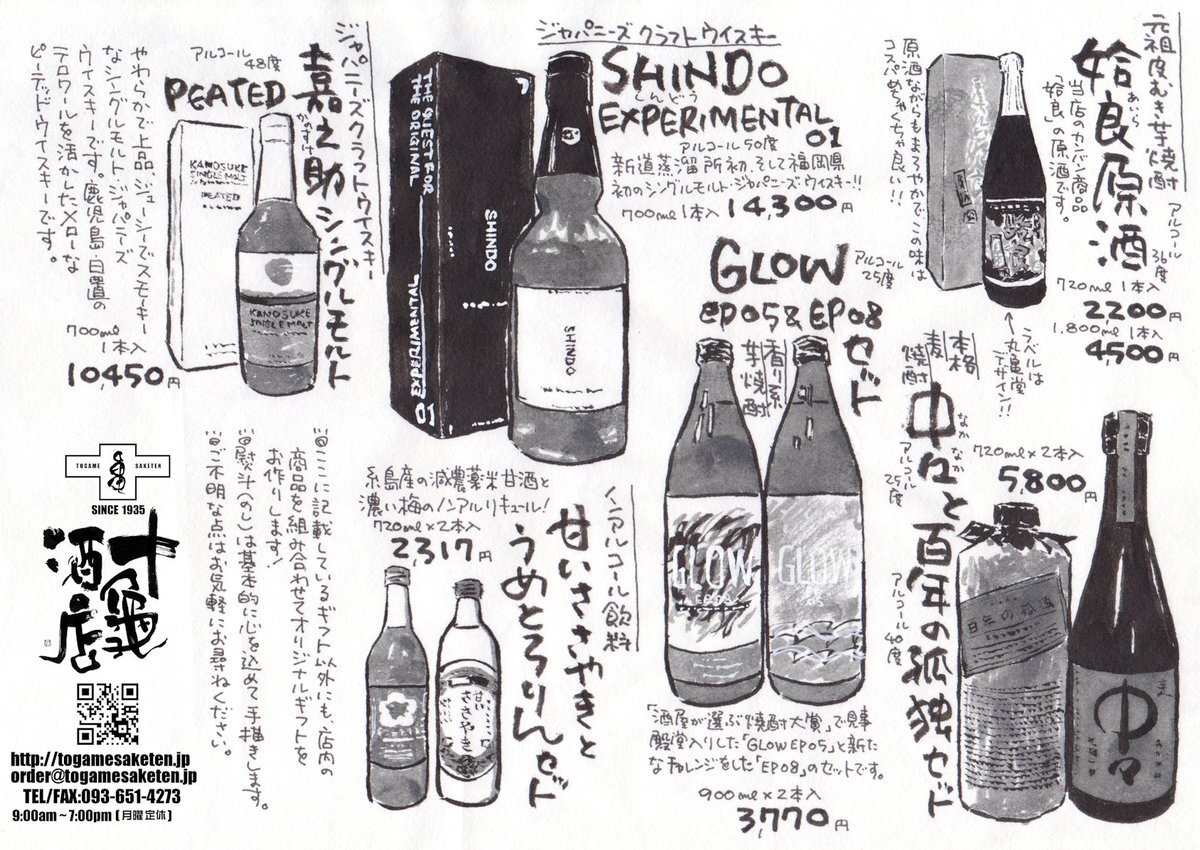 元祖皮むき芋焼酎
姶良原酒
あいら
アルコール
36度
当店のカンバン商品
「姶良」の原酒です。
原酒ながらもまろやかでこの味は
コスパめちゃくちゃ良い!!
720ml 1本入
2200円
1,800ml 1本入
4500円
ラベルは
丸亀堂
デザイン!!
ジャパニーズ クラフトウイスキー
SHINDO
しんどう
EXPERIMENTAL
01
アルコール50度
新道蒸溜所初、そして福岡県
初のシングルモルト・ジャパニーズウイスキー!!
700ml 1本入 14,300円
THE QUEST FOR
THE ORIGINAL
SHINDO
EXPERIMENTAL 01
SHINDO
ジャパニーズクラフトウイスキー
嘉之助シングルモルト
かのすけ
PEATED
アルコール
48度
やわらかで上品 ジューシーでスモーキー
なシングルモルト ジャパニーズ
ウイスキーです。鹿児島・日置の
テロワールを活かしたメローな
ピーテッドウイスキーです。
700ml
1本入
10,450円
KANOSUKE
SINGLE MALT
PEATED
KANOSUKE
SINGLE MALT
本格
麦
焼酎
中々と百年の孤独セット
なかなか
アルコール
25度
アルコール40度
720ml×2本入
5,800円
百年の孤独
中々
GLOW
アルコール
25度
EP05&EP08
セット
香り系
芋焼酎
GLOW
EP08
GLOW
「酒屋が選ぶ焼酎大賞」で見事
殿堂入りした「GLOW EP05」と新た
なチャレンジをした「EP08」のセットです。
900ml×2本入
3,770円
ノンアルコール飲料
甘いささやきと
うめとろりんセット
糸島産の減農薬米甘酒と
濃い梅のノンアルリキュール!
720ml×2本入
2,317円
ささやき
ここに記載しているギフト以外にも、店内の
商品を組み合わせてオリジナルギフトを
お作りします!
熨斗(のし)は基本的に心を込めて手描きします。
ご不明な点はお気軽にお尋ねください。
TOGAME SAKETEN
SINCE 1935
十亀
酒店
http://togamesaketen.jp
order@togamesaketen.jp
TEL/FAX:093-651-4273
9:00am~7:00pm (月曜定休)